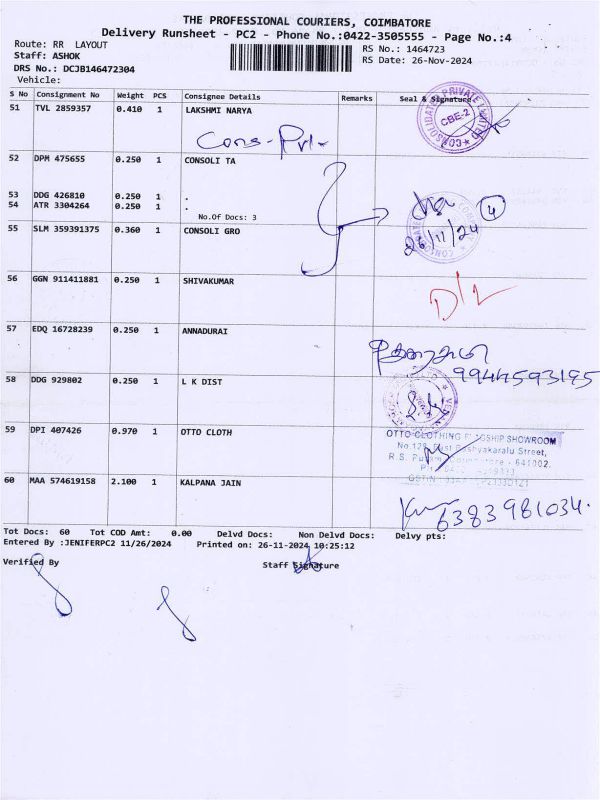 THE PROFESSIONAL COURIERS, COIMBATORE
Delivery Runsheet - PC2 - Phone No.:0422-3505555 - Page No.:4
Route: RR LAYOUT
RS No.: 1464723
Staff: ASHOK
RS Date: 26-Nov-2024
DRS No.: DCJB146472304
Vehicle:
S No Consignment No Weight PCS Consignee Details Remarks Seal & Signature
51 TVL 2859357 0.410 1 LAKSHMI NARYA
CONSOLIDATED PRIVATE LIMITED
CBE-2
Cons-Pvt-
52 DPM 475655 0.250 1 CONSOLI TA
53 DDG 426810 0.250 1 .
54 ATR 3304264 0.250 1 .
No.Of Docs: 3
4
55 SLM 359391375 0.360 1 CONSOLI GRO
26/11/24
56 GGN 911411881 0.250 1 SHIVAKUMAR
D/L
57 EDQ 16728239 0.250 1 ANNADURAI
9944593195
58 DDG 929802 0.250 1 L K DIST
59 DPI 407426 0.970 1 OTTO CLOTH
OTTO CLOTHING SHOWROOM
Street,
641002.
60 MAA 574619158 2.100 1 KALPANA JAIN
6383981034.
Tot Docs: 60 Tot COD Amt: 0.00 Delvd Docs: Non Delvd Docs: Delvy pts:
Entered By :JENIFERPC2 11/26/2024 Printed on: 26-11-2024 10:25:12
Verified By Staff Signature